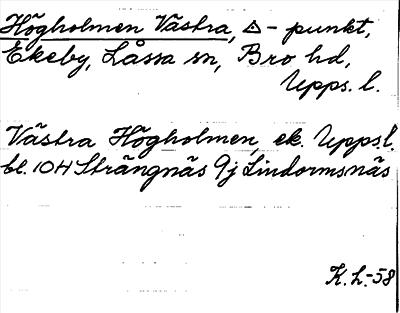 Högholmen Västra, △ - punkt,
Ekeby, Låssa sn, Bro hd,
Upps. l.
Västra Högholmen, ek. Upps.l.
bl. 10H Strängnäs 9j Lindormsnäs
K.h.-58